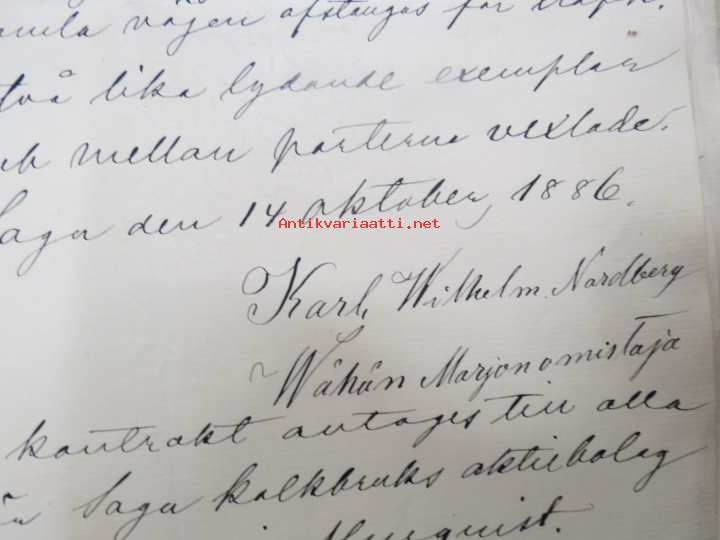 vägen afstänges för
två lika lydande exemplar
mellan parterna vexlade.
den 14 oktober 1886.
Antikvariaatti.net
Karl Wilhelm Nordberg
Wähän Marjon omistaja
kontrakt antages till alla
kalkbruks aktiebolag